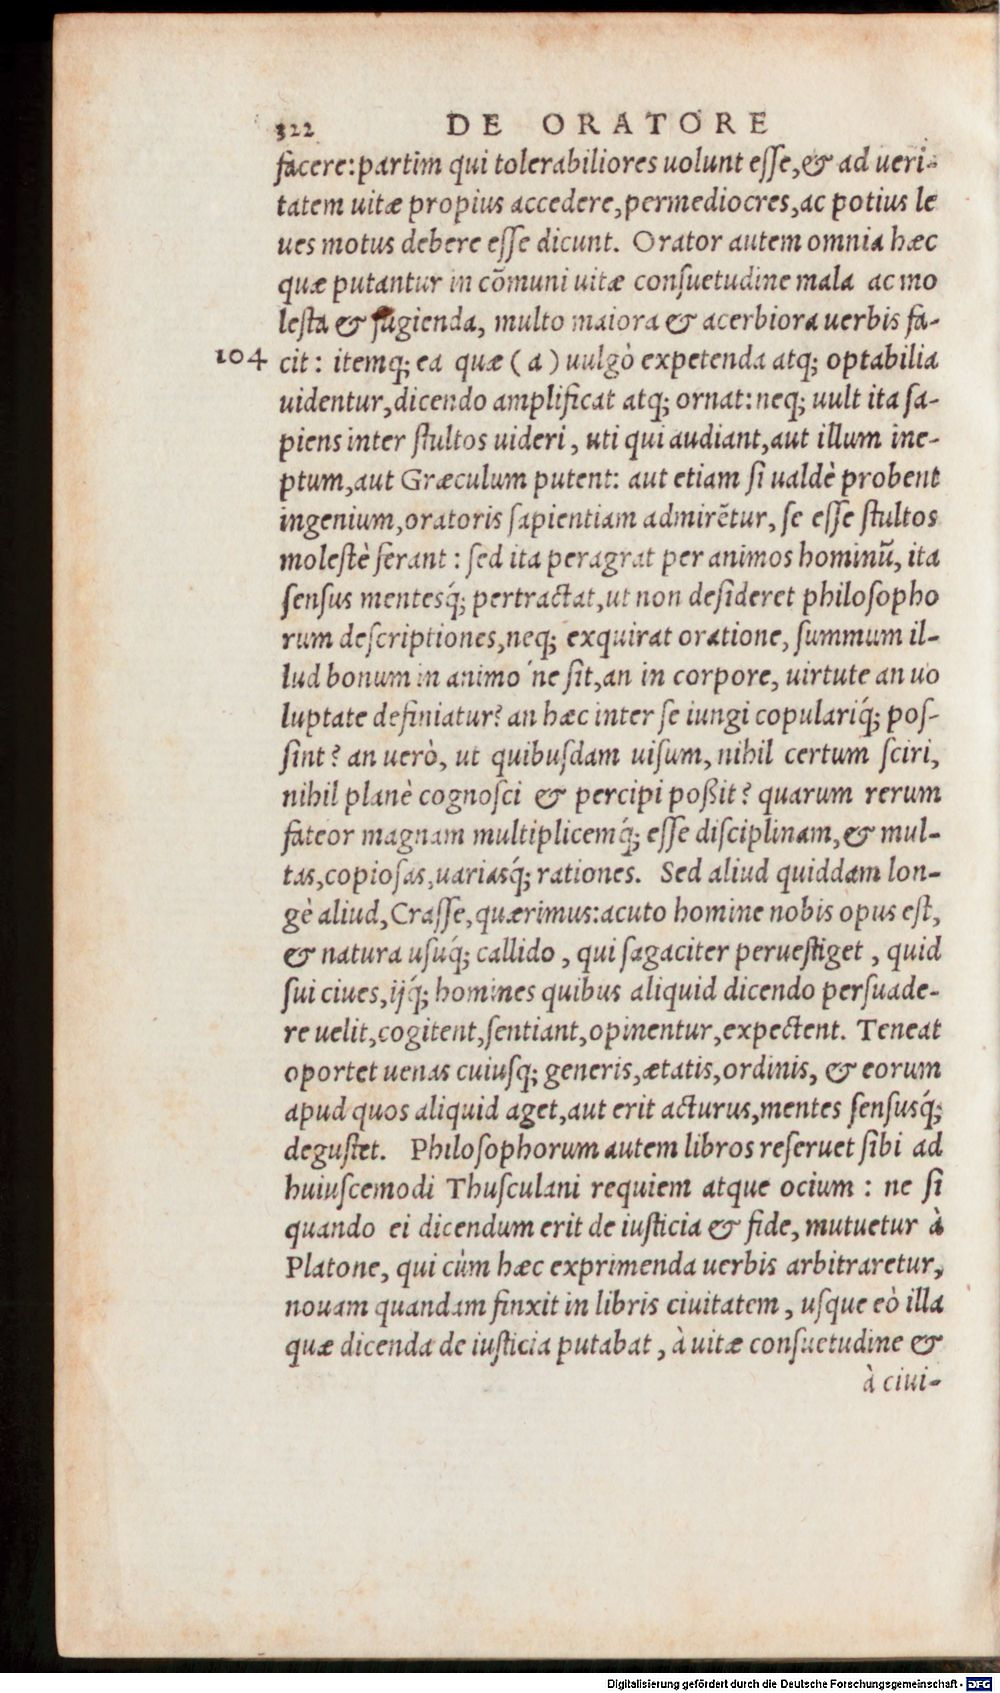 322 DE ORATORE
facere: partim qui tolerabiliores uolunt esse, & ad ueri-
tatem uitæ propius accedere, permediocres, ac potius le
ues motus debere esse dicunt. Orator autem omnia hæc
quæ putantur in cōmuni uitæ consuetudine mala ac mo
lesta & fugienda, multo maiora & acerbiora uerbis fa-
104 cit: itemq; ea quæ (a) uulgò expetenda atq; optabilia
uidentur, dicendo amplificat atq; ornat: neq; uult ita sa-
piens inter stultos uideri, uti qui audiant, aut illum ine-
ptum, aut Græculum putent: aut etiam si ualdè probent
ingenium, oratoris sapientiam admirētur, se esse stultos
molestè ferant: sed ita peragrat per animos hominū, ita
sensus mentesq́; pertractat, ut non desideret philosopho
rum descriptiones, neq; exquirat oratione, summum il-
lud bonum in animo´ne sit, an in corpore, uirtute an uo
luptate definiatur? an hæc inter se iungi copulariq́; pos-
sint? an uerò, ut quibusdam uisum, nihil certum sciri,
nihil planè cognosci & percipi poßit? quarum rerum
fateor magnam multiplicemq́; esse disciplinam, & mul-
tas, copiosas, uariasq́; rationes. Sed aliud quiddam lon-
gè aliud, Crasse, quærimus: acuto homine nobis opus est,
& natura usuq́; callido, qui sagaciter peruestiget, quid
sui ciues, ijq́; homines quibus aliquid dicendo persuade-
re uelit, cogitent, sentiant, opinentur, expectent. Teneat
oportet uenas cuiusq; generis, ætatis, ordinis, & eorum
apud quos aliquid aget, aut erit acturus, mentes sensusq́;
degustet. Philosophorum autem libros reseruet sibi ad
huiuscemodi Thusculani requiem atque ocium: ne si
quando ei dicendum erit de iusticia & fide, mutuetur à
Platone, qui cùm hæc exprimenda uerbis arbitraretur,
nouam quandam finxit in libris ciuitatem, usque eò illa
quæ dicenda de iusticia putabat, à uitæ consuetudine &
à ciui-
Digitalisierung gefördert durch die Deutsche Forschungsgemeinschaft - DFG